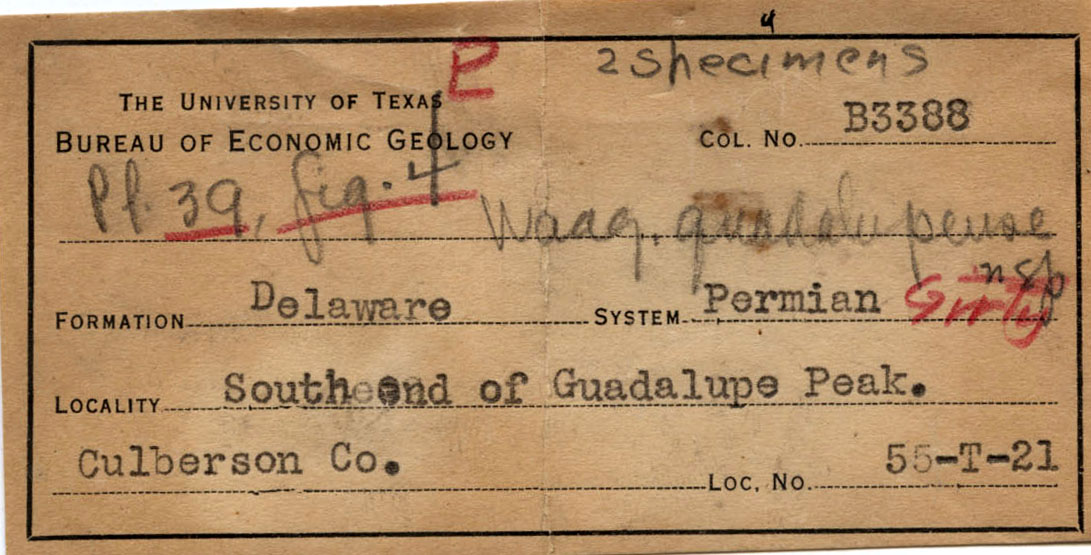 4
P 2 specimens
THE UNIVERSITY OF TEXAS
BUREAU OF ECONOMIC GEOLOGY COL. NO. B3388
Pl. 39, fig. 4 Waag. guadalupense
n sp
FORMATION Delaware SYSTEM Permian Girty
LOCALITY South end of Guadalupe Peak.
Culberson Co. LOC. NO. 55-T-21